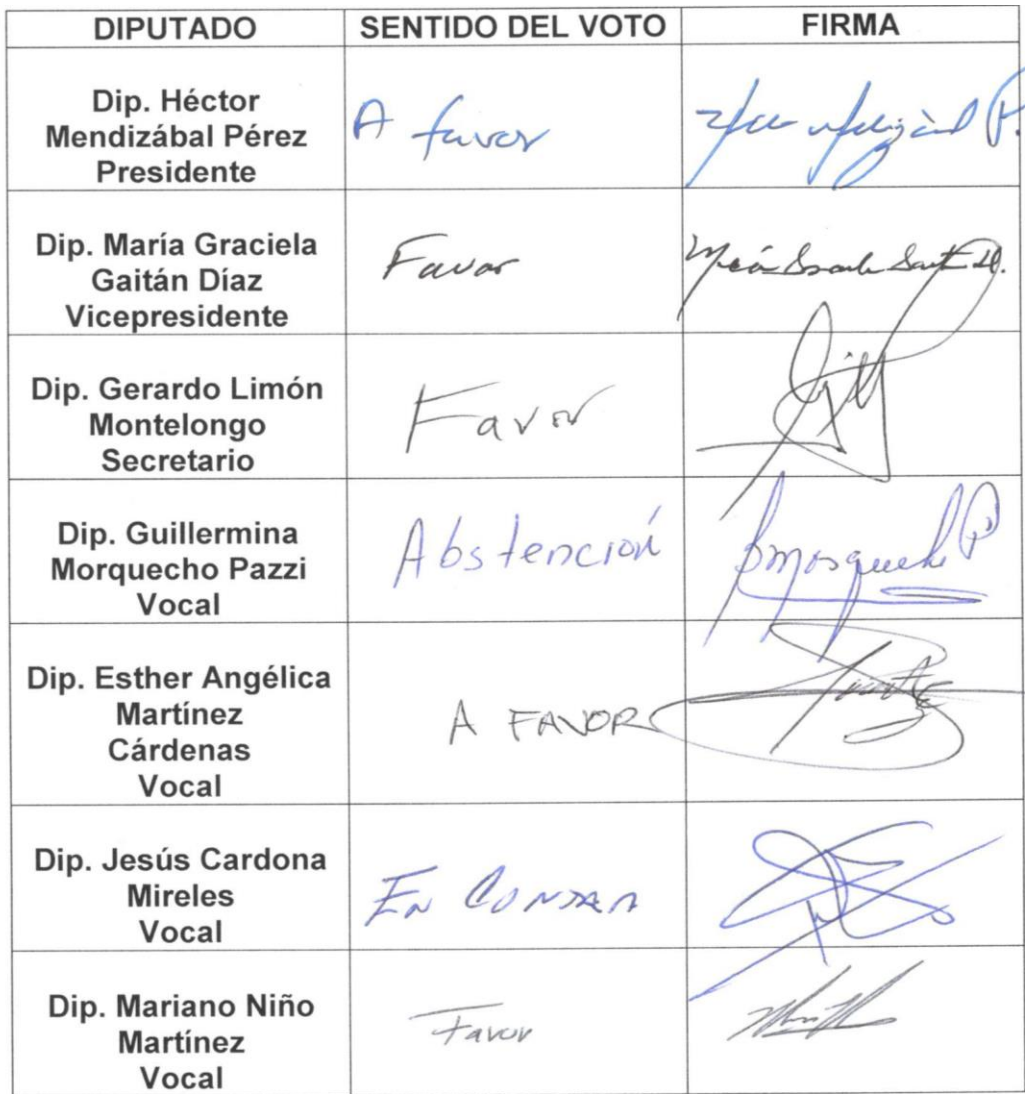 DIPUTADO SENTIDO DEL VOTO FIRMA
Dip. Héctor
Mendizábal Pérez
Presidente
A favor
Dip. María Graciela
Gaitán Díaz
Vicepresidente
Favor
Dip. Gerardo Limón
Montelongo
Secretario
Favor
Dip. Guillermina
Morquecho Pazzi
Vocal
Abstención
Dip. Esther Angélica
Martínez
Cárdenas
Vocal
A FAVOR
Dip. Jesús Cardona
Mireles
Vocal
EN CONTRA
Dip. Mariano Niño
Martínez
Vocal
Favor